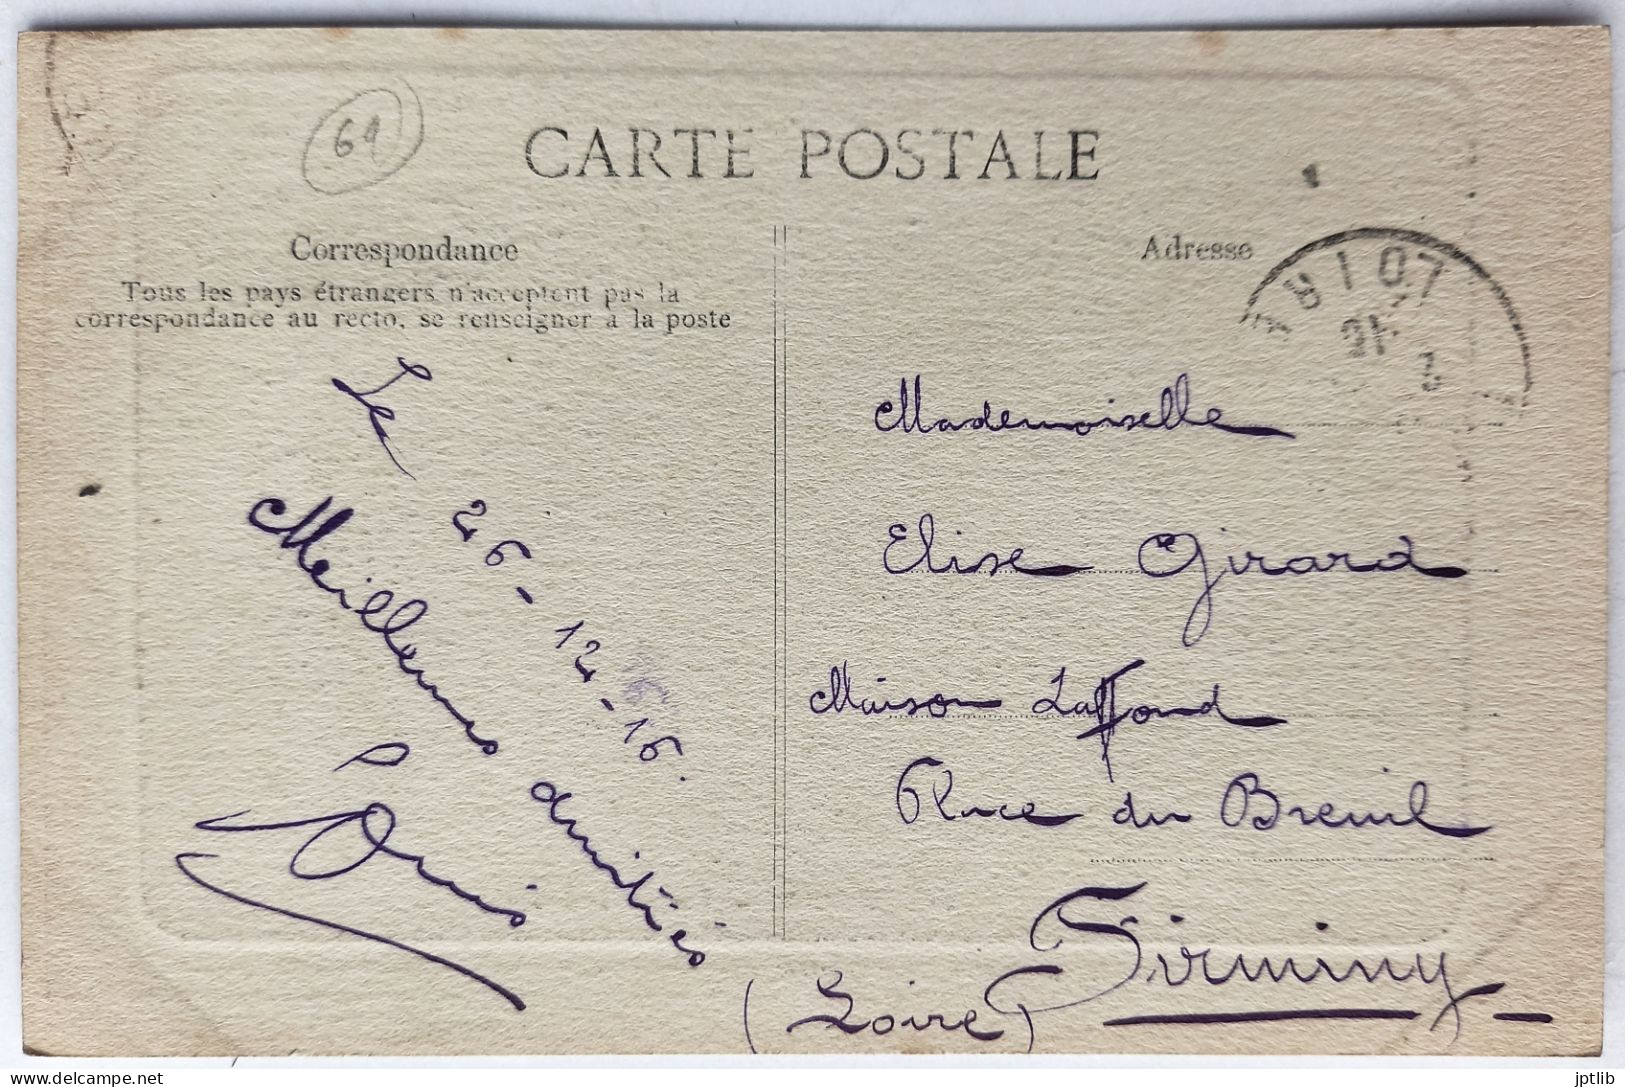 61
CARTE POSTALE
Correspondance
Tous les pays étrangers n'acceptent pas la
correspondance au recto, se renseigner à la poste
Le 26-12-16.
Meilleures amitiés
Louis
Adresse
Mademoiselle
Elise Girard
Maison Laffond
Place du Breuil
Firminy
(Loire)
delcampe.net
jptlib